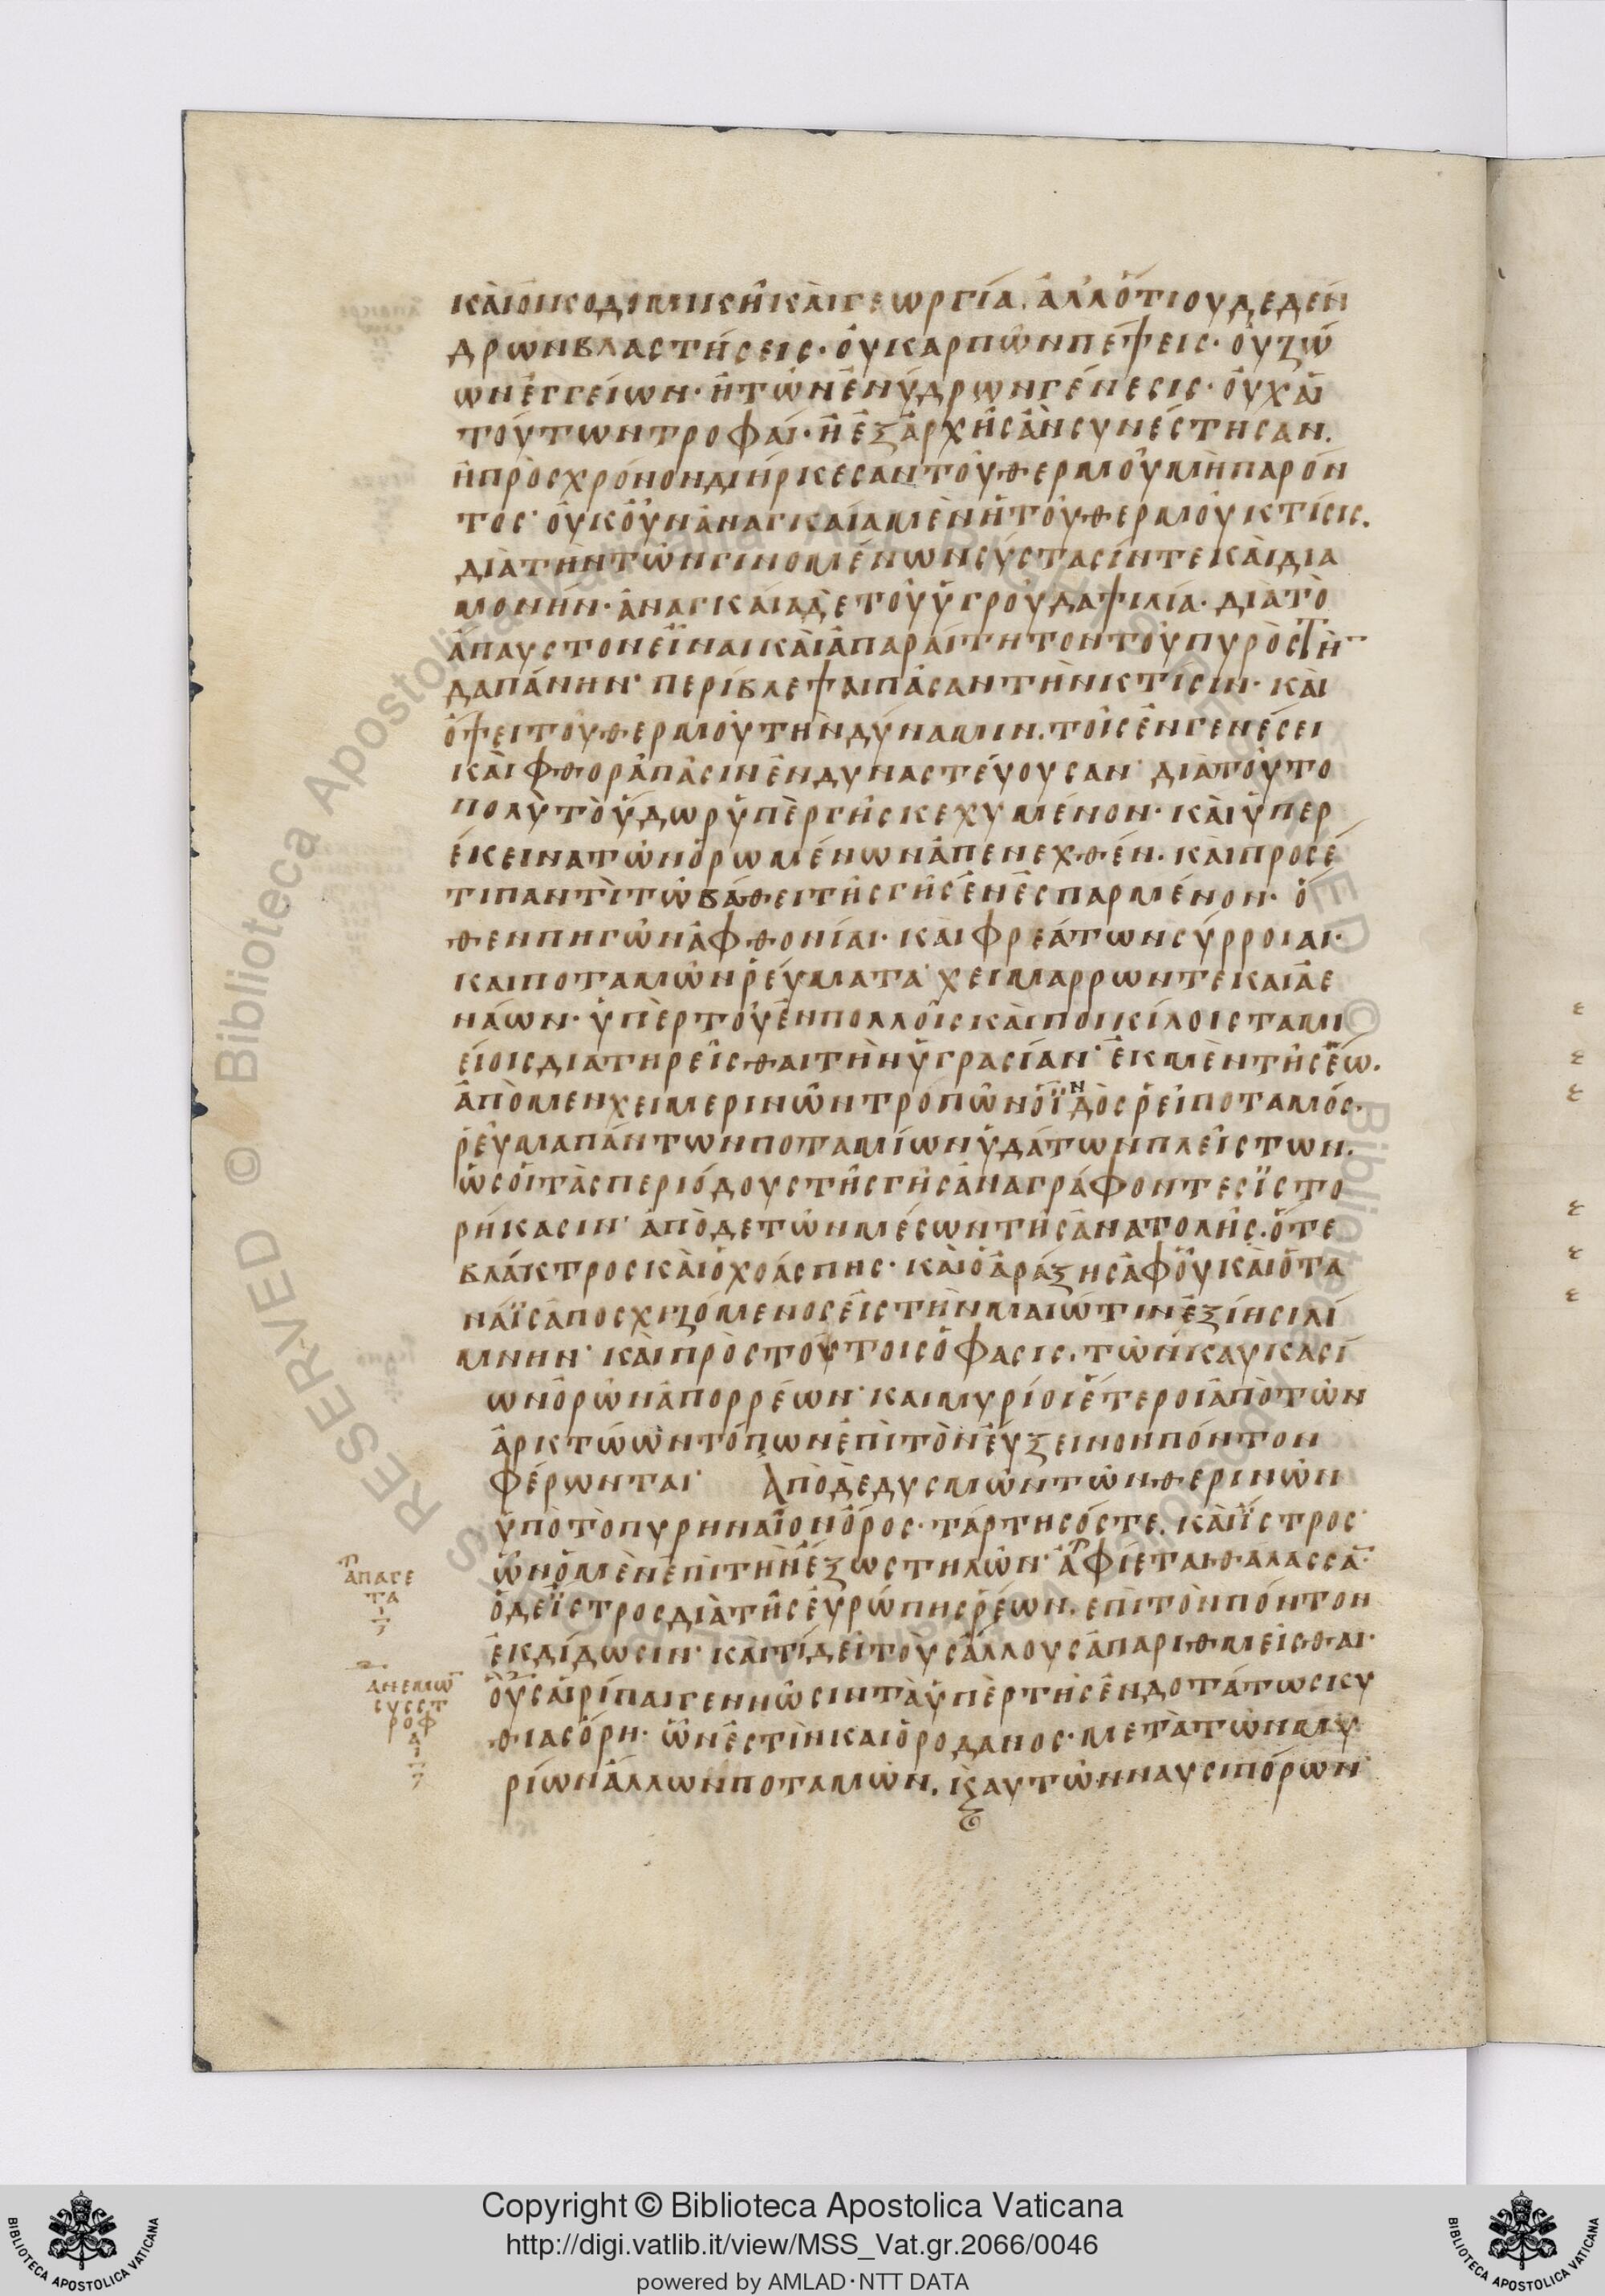 ΚΑὶΟἰΚΟΔΙΜΙΚῊΚΑὶΓΕΩΡΓίΑ. ἀΛΛ᾽ὅΤΙΟΥΔΕΔΕΝ
ΔΡΩΝΒΛΑϹΤΉϹΕΙϹ· ΟὐΚΑΡΠῶΝΠΈΨΕΙϹ· ΟὐΖΏ
ΩΝἘΓΓΕίΩΝ· ἪΤῶΝἘΝΎΔΡΩΝΓΈΝΕϹΙϹ· ΟὐΧΑἱ
ΤΟΎΤΩΝΤΡΟΦΑί· ἪἘΞἈΡΧῆϹἊΝϹΥΝΈϹΤΗϹΑΝ.
ἪΠΡὸϹΧΡΌΝΟΝΔΙΉΡΚΕϹΑΝΤΟῦΘΕΡΜΟῦΜῊΠΑΡΌΝ
ΤΟϹ· ΟὐΚΟῦΝἈΝΑΓΚΑίΑΜῈΝἩΤΟῦΘΕΡΜΟῦΚΤίϹΙϹ.
ΔΙᾺΤῊΝΤῶΝΓΙΝΟΜΈΝΩΝϹΎϹΤΑϹίΝΤΕΚΑὶΔΙΑ
ΜΟΝΉΝ· ἈΝΑΓΚΑίΑΔῈΤΟῦὙΓΡΟῦΔΑΨΙΛίΑ· ΔΙᾺΤῸ
ἌΠΑΥϹΤΟΝΕἶΝΑΙΚΑὶἈΠΑΡΑίΤΗΤΟΝΤΟῦΠΥΡῸϹΤῊ̄
ΔΑΠΆΝΗΝ· ΠΕΡίΒΛΕΨΑΙΠᾶϹΑΝΤῊΝΚΤίϹΙΝ· ΚΑὶ
ὌΨΕΙΤΟῦΘΕΡΜΟῦΤῊΝΔΎΝΑΜΙΝ. ΤΟῖϹἘΝΓΕΝΈϹΕΙ
ΚΑὶΦΘΟΡᾷΠᾶϹΙΝἘΝΔΥΝΑϹΤΕΎΟΥϹΑΝ· ΔΙΑΤΟῦΤΟ
ΠΟΛῪΤῸὝΔΩΡὙΠῈΡΓῆϹΚΕΧΥΜΈΝΟΝ· ΚΑὶὙΠΕΡ
ἘΚΕΙΝΑΤῶΝὉΡΩΜΈΝΩΝἈΠΕΝΕΧΘΈΝ· ΚΑὶΠΡΟϹΈ
ΤΙΠΑΝΤὶΤῶΒΆΘΕΙΤῆϹΓῆϹἘΝἘϹΠΑΡΜΈΝΟΝ· Ὅ
ΘΕΝΠΗΓῶΝἈΦΘΟΝίΑΙ· ΚΑὶΦΡΕΆΤΩΝϹΎΡΡΟΙΑΙ·
ΚΑΙΠΟΤΑΜῶΝῬΕΎΜΑΤΑ· ΧΕΙΜΑΡΡΩΝΤΕΚΑΙἈΕ
ΝΆΩΝ· ὙΠῈΡΤΟῦἘΝΠΟΛΛΟῖϹΚΑὶΠΟΙΚίΛΟΙϹΤΑΜΙ
ΕίΟΙϹΔΙΑΤΗΡΕῖϹΘΑΙΤῊΝὙΓΡΑϹίΑΝ· ἘΚΜῈΝΤῆϹἝΩ.
ἈΠῸΜΕΝΧΕΙΜΕΡΙΝῶΝΤΡΟΠῶΝὉἸΝΔῸϹῬΕῖΠΟΤΑΜΌϹ.
ῬΕῦΜΑΠΆΝΤΩΝΠΟΤΑΜίΩΝὙΔΆΤΩΝΠΛΕῖϹΤΩΝ.
ὩϹΟἹΤᾺϹΠΕΡΙΌΔΟΥϹΤῆϹΓῆϹἈΝΑΓΡΆΦΟΝΤΕϹἹϹΤΟ
ΡΉΚΑϹΙΝ· ἈΠῸΔΕΤῶΝΜΈϹΩΝΤῆϹἈΝΑΤΟΛῆϹ. ὍΤΕ
ΒΛΆΚΤΡΟϹΚΑὶὉΧΟΆϹΠΗϹ· ΚΑὶὉἈΡΆΞΗϹἈΦΟὗΚΑὶὉΤΑ
ΝΆΪϹἈΠΟϹΧΙΖΌΜΕΝΟϹΕἸϹΤῊΝΜΑΙΏΤΙΝἘΞίΗϹΙΛί
ΜΝΗΝ· ΚΑὶΠΡῸϹΤΟΎΤΟΙϹὉΦΑϹΙϹ. ΤῶΝΚΑΥΚΑϹί
ΩΝὈΡῶΝἈΠΟΡΡΈΩΝ· ΚΑΙΜΥΡίΟΙἝΤΕΡΟΙἈΠῸΤῶΝ
ἈΡΚΤΏΩΝΤΌΠΩΝἘΠὶΤῸΝΕὔΞΕΙΝΟΝΠΌΝΤΟΝ
ΦΈΡΩΝΤΑΙ· ἈΠῸΔῈΔΥϹΜῶΝΤῶΝΘΕΡΙΝῶΝ
ὙΠῸΤῸΠΥΡΗΝΑῖΟΝὌΡΟϹ· ΤΆΡΤΗϹΌϹΤΕ. ΚΑὶἼϹΤΡΟϹ·
ὯΝὉΜῈΝἘΠὶΤῊΝἜΞΩϹΤΗΛῶΝ· ἈΦίΕΤΑΙΘΆΛΑϹϹᾱ·
ὉΔΕἼϹΤΡΟϹΔΙᾺΤῆϹΕὐΡΏΠΗϹῬΈΩΝ. ἘΠὶΤῸΝΠΌΝΤΟΝ
ἘΚΔίΔΩϹΙΝ· ΚΑὶΤίΔΕῖΤΟῪϹἌΛΛΟΥϹἈΠΑΡΙΘΜΕῖϹΘΑΙ·
ΟὝϹΑἹΡίΠΑΙΓΕΝΝῶϹΙΝΤᾺὙΠῈΡΤῆϹἘΝΔΟΤΆΤΩϹΚΥ
ΘΙΑϹὌΡΗ· ὯΝἘϹΤὶΝΚΑΙὉΡΟΔΑΝΟϹ· ΜΕΤᾺΤῶΝΜΥ
ΡίΩΝἌΛΛΩΝΠΟΤΑΜῶΝ. ΚϏΑΥΤῶΝΝΑΥϹΙΠΌΡΩΝ
ΑΠΑΓΕ
ΤΑ
ΑΝΕΜΩ
ϹΥϹϹΤ
ΡΟΦ
Α
Ι
Copyright © Biblioteca Apostolica Vaticana
http://digi.vatlib.it/view/MSS_Vat.gr.2066/0046
powered by AMLAD·NTT DATA
BIBLIOTECA APOSTOLICA VATICANA
BIBLIOTECA APOSTOLICA VATICANA